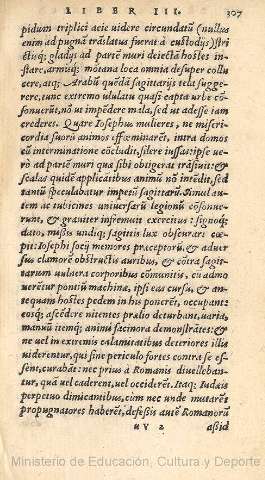 LIBER III. 307
pidum triplici acie videre circundatũ (nullus
enim ad pugnã trãslatus fuerat à custodijs) stri
ctisq; gladijs ad partẽ muri deiectã hostes in-
stare, armisq; mõtana loca omnia desuper collu
cere, atq; Arabũ quẽdã sagittarijs tela sugge-
rere, tunc extremo ululatu quasi capta urbe cõ-
sonuerũt, nõ ut impẽdere mala, sed ut adesse iam
crederes. Quare Iosephus mulieres, ne miseri-
cordia suorũ animos effœminarẽt, intra domos
cũ interminatione cõcludit, silere iussas: ipse ue-
rò ad partẽ muri qua sibi obtigerat trãsiuit: &
scalas quidẽ applicãtibus animũ nõ intẽdit, sed
tantũ speculabatur impetũ sagittarũ. Simul au-
tem ac tubicines universarũ legionũ cõsonue-
runt, & grauiter infremuit exercitus: signoq;
dato, missis undiq; sagittis lux obscurari cœ-
pit: Iosephi socij memores præceptorũ, & aduer
sus clamorẽ obstructis auribus, & cõtra sagit-
tarum uulnera corporibus cõmunitis, cũ admo
uerẽtur pontiũ machinæ, ipsi eas cursu, & an-
tequam hostes pedem in his ponerẽt, occupant:
eosq; ascẽdere nitentes prælio deturbant, uaria,
manuũ itemq; animi facinora demonstrãtes: &
ne uel in extremis calamitatibus deteriores illis
uiderentur, qui sine periculo fortes contra se es-
sent, curabãt: nec prius à Romanis diuellebãn-
tur, quã uel caderent, uel occiderẽt. Itaq; Iudæis
perpetuo dimicantibus, cum nec unde mutarẽt
propugnatores haberẽt, defessis autẽ Romanorũ
uV 2 aßid
Ministerio de Educación, Cultura y Deporte